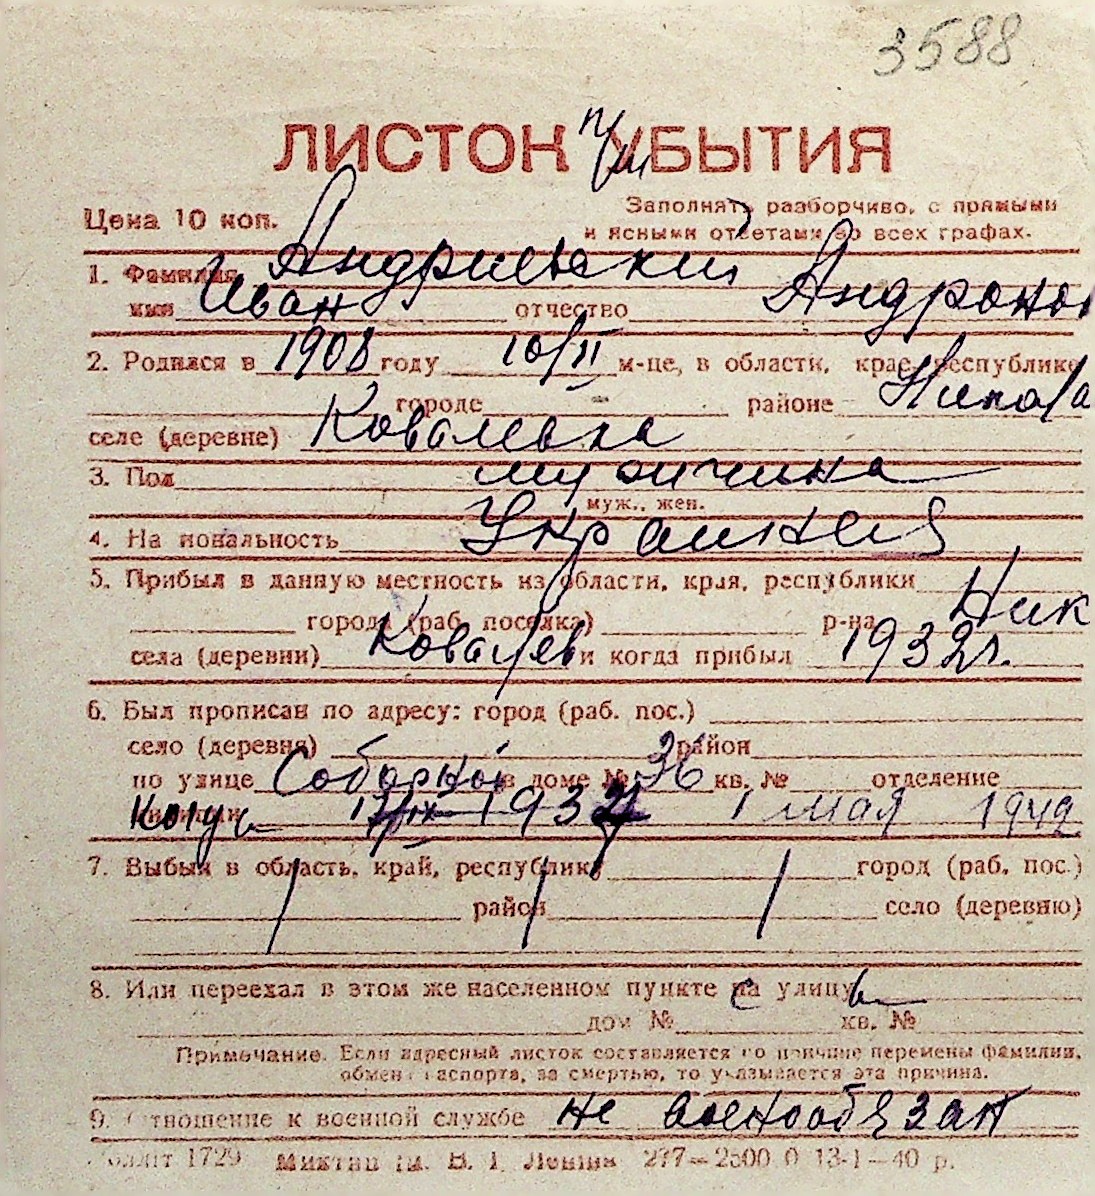 3588
ЛИСТОК УБЫТИЯ
Цена 10 коп.
Заполнять разборчиво, с прямыми
и ясными ответами во всех графах.
1. Фамилия Андриевский
имя Иван отчество Андроно
2. Родился в 1908 году 10/II м-це, в области, крае, республике
городе - районе Никола
селе (деревне) Ковалевка
3. Пол мужчина
муж., жен.
4. На иональность Украинец
5. Прибыл в данную местность из области, края, республики
города (раб. поселка) р-на Ник
села (деревни) Ковалев и когда прибыл 1932 г.
6. Был прописан по адресу: город (раб. пос.)
село (деревня) район
по улице Соборной в доме № 36 кв. № отделение
милиции 1 мая 1942
7. Выбыл в область, край, республику город (раб. пос.)
район село (деревню)
8. Или переехал в этом же населенном пункте на улицу
дом № кв. №
Примечание. Если адресный листок составляется по причине перемены фамилии,
обмена паспорта, за смертью, то указывается эта причина.
9. Отношение к военной службе не военнообязан
1729 им. В. І. Леніна 277—2500 0 13-1—40 р.